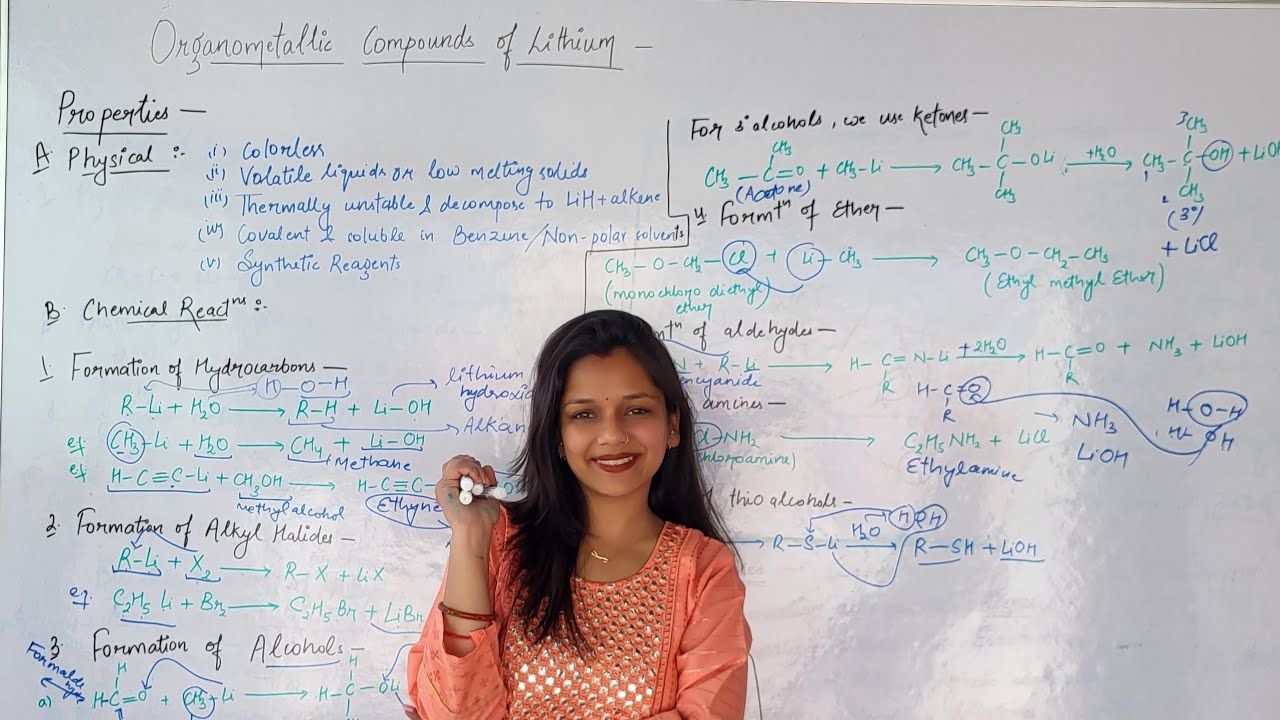 Organometallic Compounds of Lithium —
Properties —
A. Physical :- (i) Colorless
(ii) Volatile liquids or low melting solids
(iii) Thermally unstable & decompose to LiH + alkene
(iv) Covalent & soluble in Benzene/Non-polar solvents
(v) Synthetic Reagents
B. Chemical Reactns :-
1. Formation of Hydrocarbons —
H—O—H
R-Li + H2O → R-H + Li-OH
lithium
Alkan
eg CH3-Li + H2O → CH4 + Li-OH
Methane
eg H-C≡C-Li + CH3OH → H-C≡C-
Methyl alcohol
Ethyne
2. Formation of Alkyl Halides —
R-Li + X2 → R-X + LiX
eg. C2H5 Li + Br2 → C2H5Br + LiBr
3. Formation of Alcohols —
H H
a) H-C=O + CH3-Li → H-C-OLi
For 3° alcohols, we use ketones —
CH3 CH3 3CH3
CH3-C=O + CH3-Li → CH3-C-OLi +H2O → CH3-C-OH + LiOH
(Acetone) CH3 CH3
(3°)
4. Formtn of Ether —
+ LiCl
CH3-O-CH2-Cl + Li-CH3 → CH3-O-CH2-CH3
(monochloro diethyl ether) (Ethyl methyl Ether)
of aldehydes —
N + R-Li → H-C=N-Li +2H2O → H-C=O + NH3 + LiOH
R R
encyanide
H-C=O
R
H-O-H
→ NH3
LiOH
amines —
-NH2 → C2H5NH2 + LiCl
chloroamine) Ethylamine
thio alcohols —
H O H
→ R-S-Li H2O → R-SH + LiOH